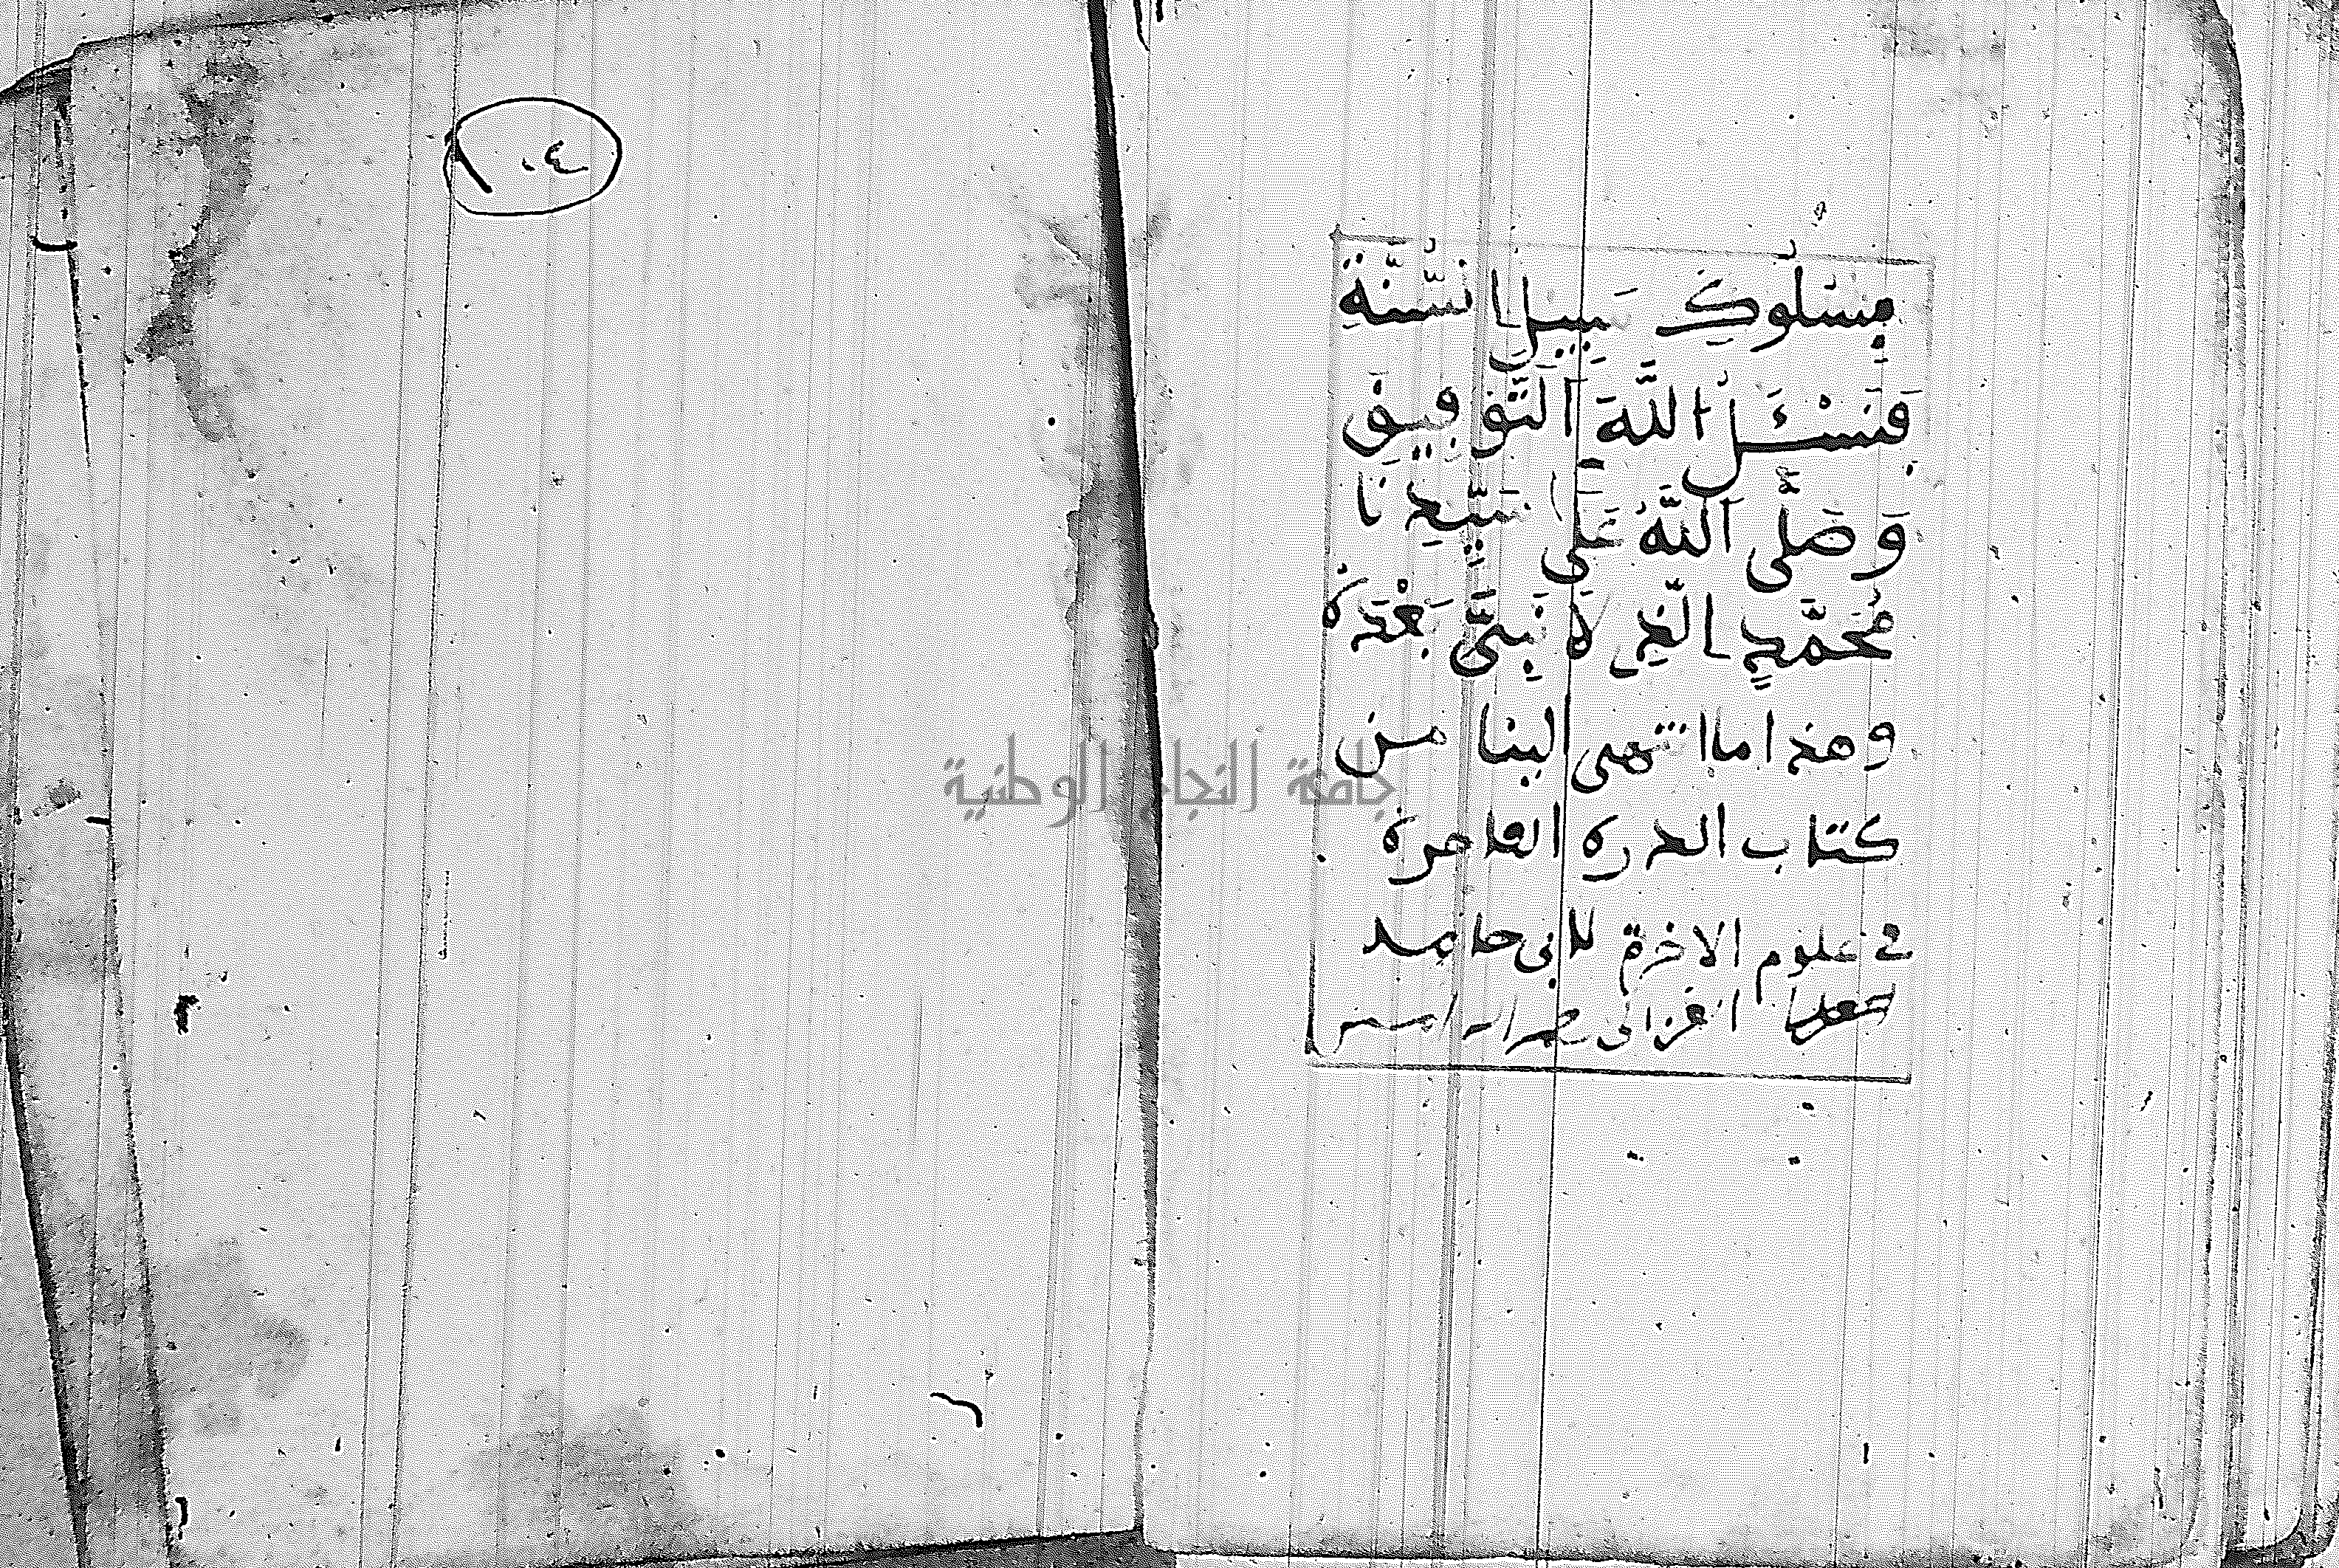 بِسُلُوكِ سَبِيلِ السُّنَّةِ
فَنَسْئَلُ اللَّهَ التَّوْفِيقَ
وَصَلَّى اللَّهُ عَلَى سَيِّدِنَا
مُحَمَّدٍ الَّذِي لَا نَبِيَّ بَعْدَهُ
وهذا ما انتهى الينا من
كتاب الدرة الفاخرة
في علوم الاخرة لابي حامد
الغزالي
١٠٤
جامعة النجاح الوطنية